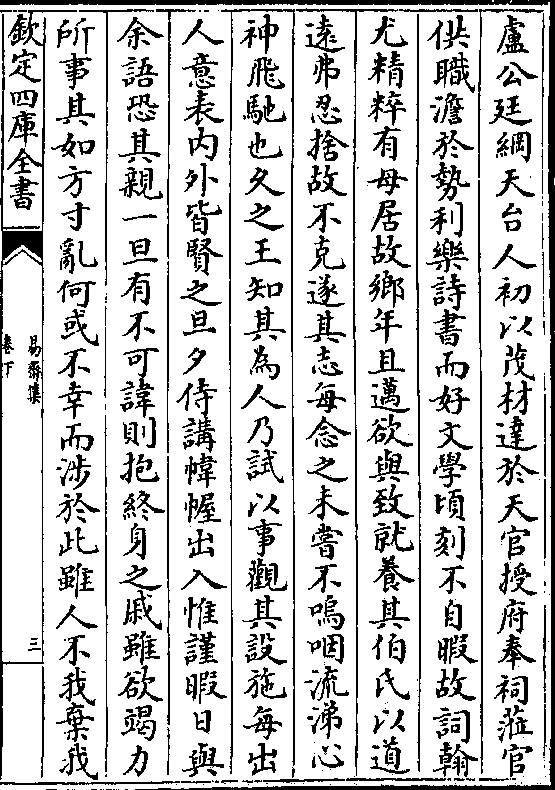 盧公廷綱天台人初以茂材達於天官授府奉祠蒞官
供職澹於勢利樂詩書而好文學頃刻不自暇故詞翰
尤精粹有母居故鄉年且邁欲與致就養其伯氏以道
遠弗忍捨故不克遂其志每念之未嘗不嗚咽流涕心
神飛馳也久之王知其為人乃試以事觀其設施每出
人意表内外皆賢之旦夕侍講幃幄出入惟謹暇日與
余語恐其親一旦有不可諱則抱終身之戚雖欲竭力
所事其如方寸亂何或不幸而涉於此雖人不我棄我
欽定四庫全書
易齋集
卷下
三